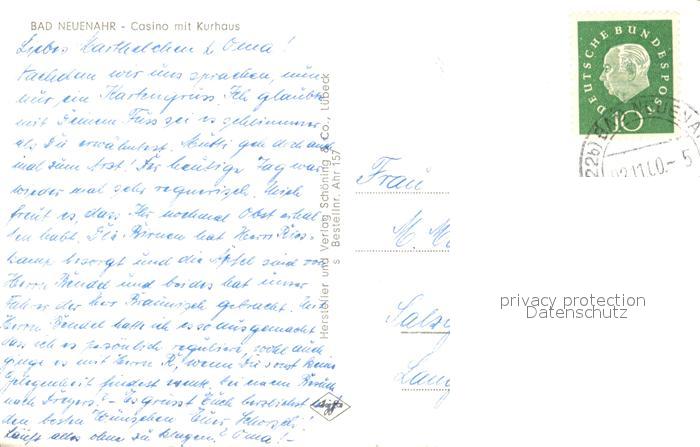 BAD NEUENAHR - Casino mit Kurhaus
Liebes Karthelchen & Oma!
Nachdem wir uns sprachen, nun
nur ein Kartengruss. Ich glaubte
mit Deinem Fuss sei es schlimmer
als Du erwähntest. Mutti geh doch auch
mal zum Arzt! Der heutige Tag war
wieder mal sehr regnerisch. Mich
freut es, dass Ihr nochmal Obst erhal-
ten habt. Die Birnen hat Herr
kamp besorgt und die Äpfel sind von
Herrn Bendel und beides hat unser
Fahrer der Herr gebracht. Mit
Herrn Bendel hatte ich es so ausgemacht
dass ich es persönlich reguliere, wohl auch
ginge es mit Herrn R, wenn Du sonst keine
Gelegenheit findest bei einem Besuch
nach Drägers? - Es grüsst Euch herzlichst
den besten Wünschen Euer
Läuft alles ohne zu klagen? Oma! -
Hersteller und Verlag Schöning & Co., Lübeck
s Bestellnr. Ahr 157
Frau
M. M
Salz
Lan
DEUTSCHE BUNDESPOST
10
(22b) BAD NEUENA
- 5
privacy protection
Datenschutz